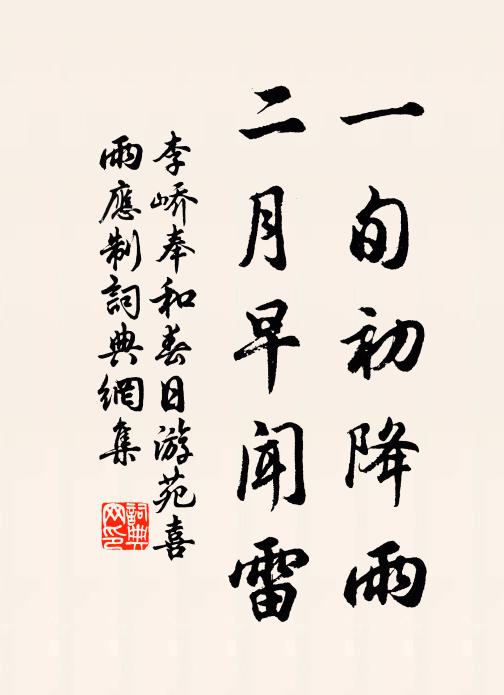 一旬初降雨
二月早闻雷
李峤奉和春日游苑喜
雨應制詞典網集
詞典网印